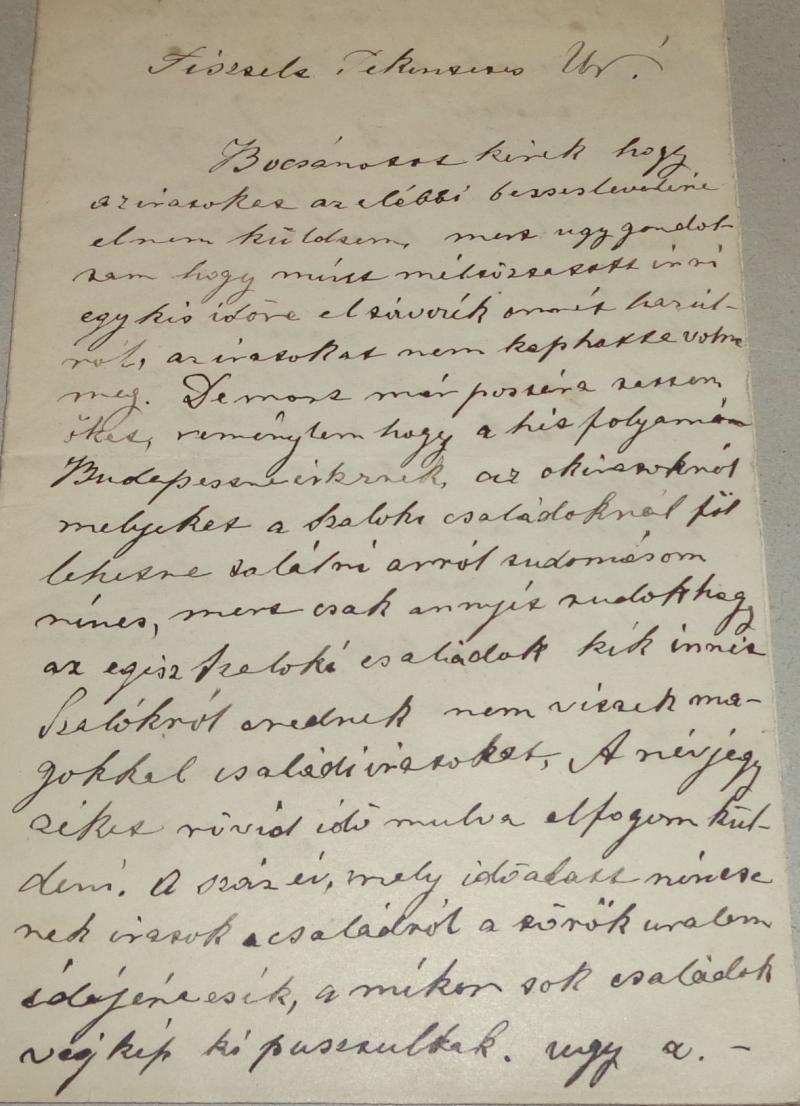 Tisztelt Tekintetes Úr!
Bocsánatot kérek hogy
az iratokat az elébbi becses levelére
el nem küldtem, mert ugy gondol-
tam hogy mint méltóztatott irni
egy kis időre eltávozik onnét hazúl-
ról, az iratokat nem kaphatta volna
meg. De most már postára tettem
őket, reménylem hogy a hét folyamán
Budapestre érkeznek, az okiratokról
melyeket a Szaloki családoknál föl
lehetne találni arról tudomásom
nincs, mert csak annyit tudok hogy
az egész Szaloki családok kik innét
Szalókról erednek nem vittek ma-
gokkal családi iratokat, A névjegy
zéket rövid idő mulva elfogom kül-
deni. A száz év, mely idő alatt nincse
nek iratok a családról a török uralom
idejére esik, a mikor sok családok
végkép ki pusztultak. ugy a. –